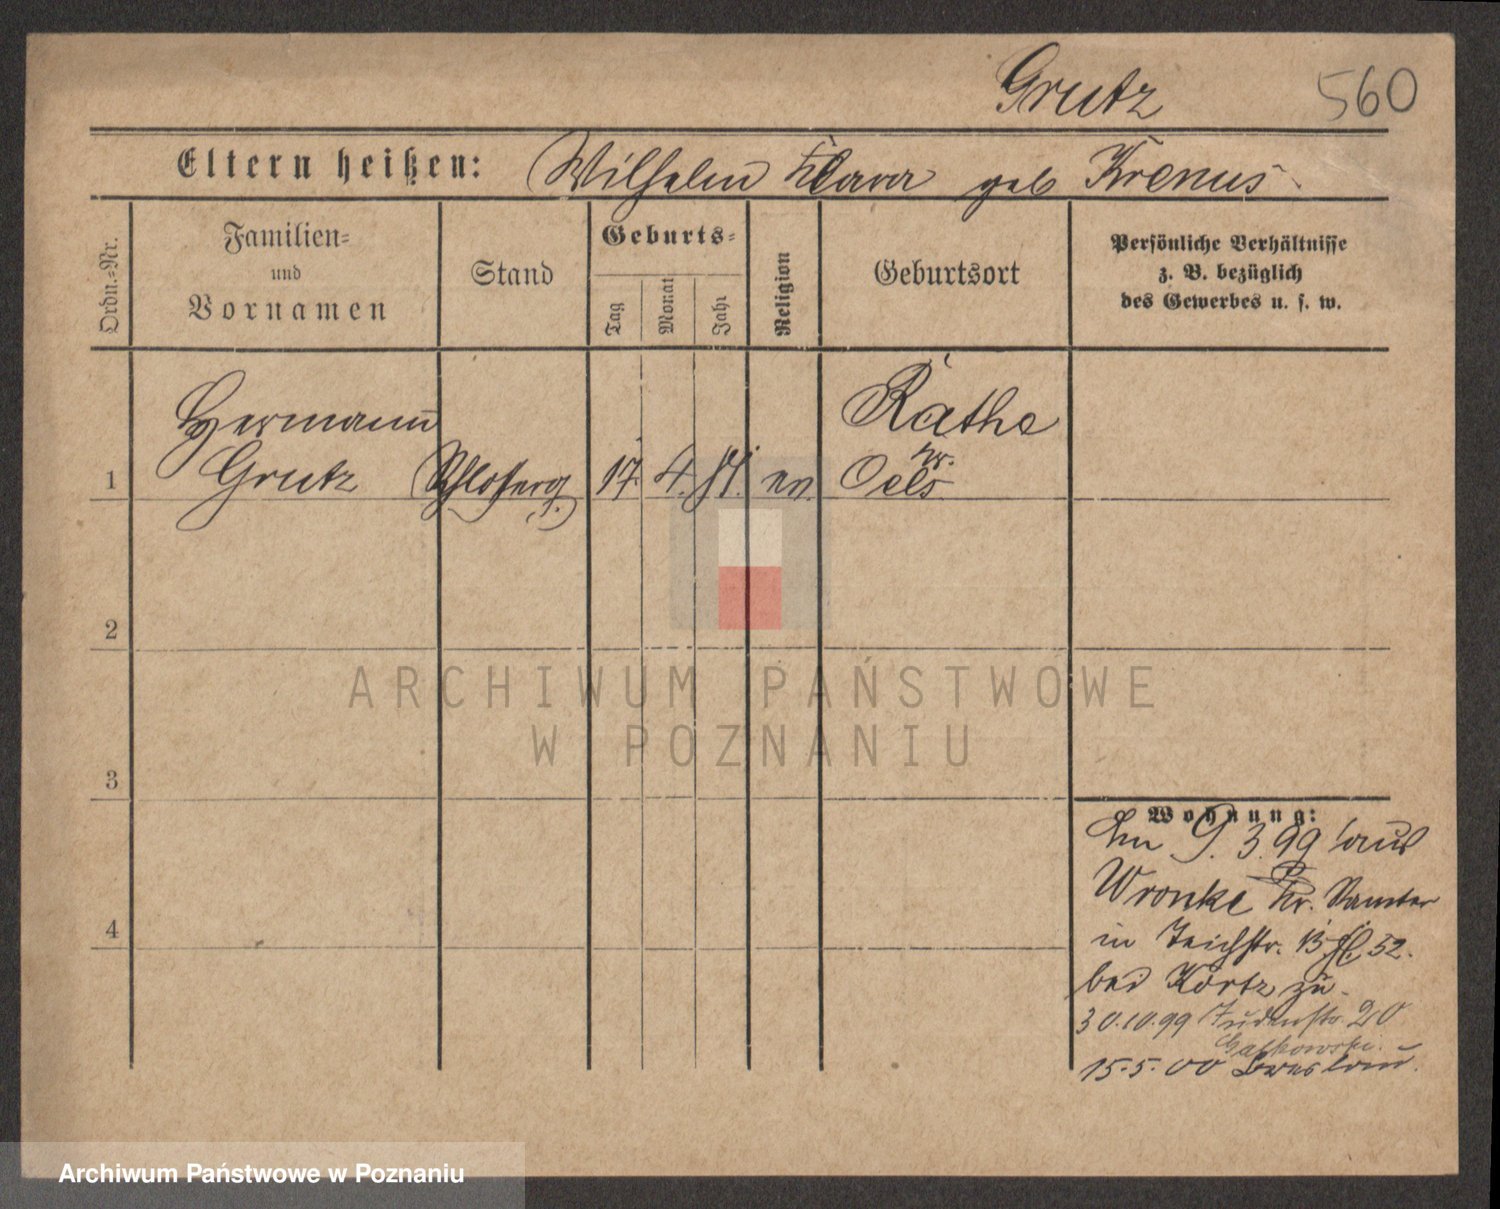 Grutz 560
Eltern heißen: Wilhelm Klara geb Krenus
Ordn.-Nr.
Familien-
und
Vornamen
Stand
Geburts-
Tag
Monat
Jahr
Religion
Geburtsort
Persönliche Verhältnisse
z. B. bezüglich
des Gewerbes u. s. w.
Hermann
Grutz
1 Schlosserg. 17. 4. 81. ev. Rathe
Kr.
Oels
2
3
4
ARCHIWUM PAŃSTWOWE
W POZNANIU
Wohnung:
Am 9. 3. 99 aus
Wronke Kr. Samter
in Teichstr. 13 52.
bei Kortz zu
30.10.99 Judenstr. 20
15.5.00 Breslau.
Archiwum Państwowe w Poznaniu